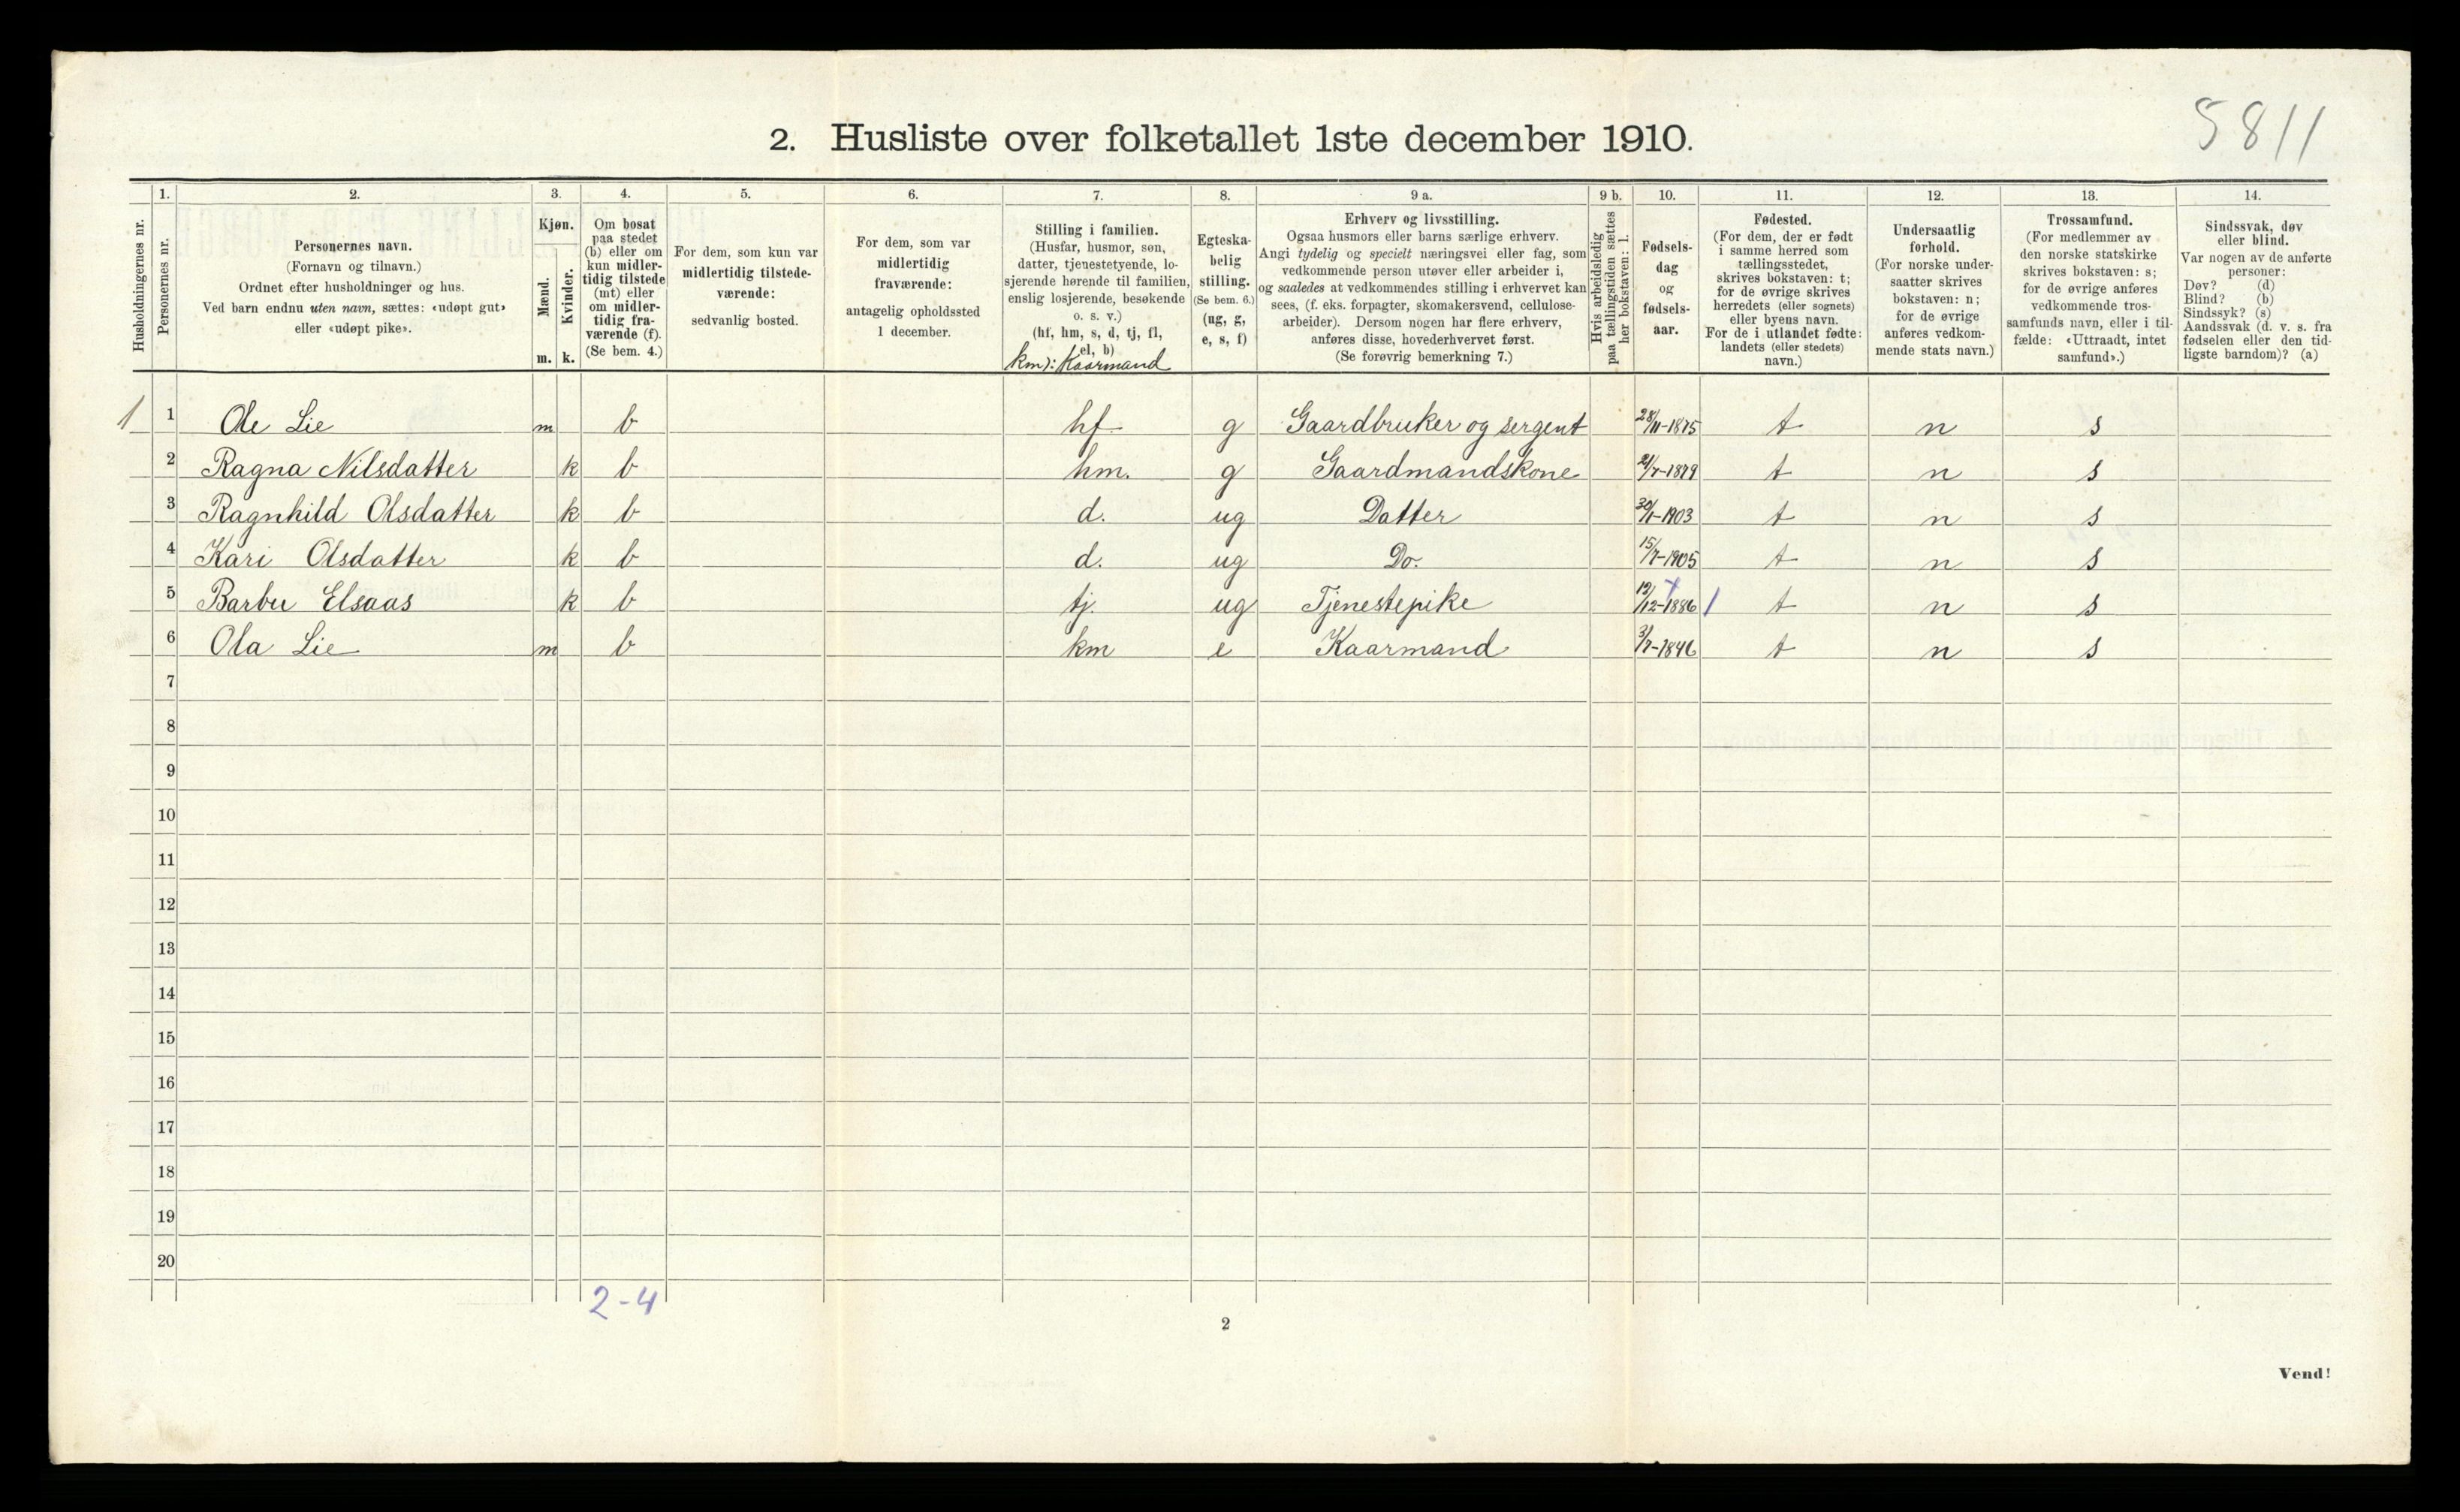 5811
2. Husliste over folketallet 1ste december 1910.
Husholdningernes nr.
1.
Personernes nr.
2.
Personernes navn.
(Fornavn og tilnavn.)
Ordnet efter husholdninger og hus.
Ved barn endnu uten navn, sættes: «udøpt gut»
eller «udøpt pike».
3.
Kjøn.
Mænd.
Kvinder.
m. k.
4.
Om bosat
paa stedet
(b) eller om
kun midler-
tidig tilstede
(mt) eller
om midler-
tidig fra-
værende (f).
(Se bem. 4.)
5.
For dem, som kun var
midlertidig tilstede-
værende:
sedvanlig bosted.
6.
For dem, som var
midlertidig
fraværende:
antagelig opholdssted
1 december.
7.
Stilling i familien.
(Husfar, husmor, søn,
datter, tjenestetyende, lo-
sjerende hørende til familien,
enslig losjerende, besøkende
o. s. v.)
(hf, hm, s, d, tj, fl,
el, b)
km): Kaarmand
8.
Egteska-
belig
stilling.
(Se bem. 6.)
(ug, g,
e, s, f)
9 a.
Erhverv og livsstilling.
Ogsaa husmors eller barns særlige erhverv.
Angi tydelig og specielt næringsvei eller fag, som
vedkommende person utøver eller arbeider i,
og saaledes at vedkommendes stilling i erhvervet kan
sees, (f. eks. forpagter, skomakersvend, cellulose-
arbeider). Dersom nogen har flere erhverv,
anføres disse, hovederhvervet først.
(Se forøvrig bemerkning 7.)
9 b.
Hvis arbeidsledig
paa tællingstiden sættes
her bokstaven: l.
10.
Fødsels-
dag
og
fødsels-
aar.
11.
Fødested.
(For dem, der er født
i samme herred som
tællingsstedet,
skrives bokstaven: t;
for de øvrige skrives
herredets (eller sognets)
eller byens navn.
For de i utlandet fødte:
landets (eller stedets)
navn.)
12.
Undersaatlig
forhold.
(For norske under-
saatter skrives
bokstaven: n;
for de øvrige
anføres vedkom-
mende stats navn.)
13.
Trossamfund.
(For medlemmer av
den norske statskirke
skrives bokstaven: s;
for de øvrige anføres
vedkommende tros-
samfunds navn, eller i til-
fælde: «Uttraadt, intet
samfund».)
14.
Sindssvak, døv
eller blind.
Var nogen av de anførte
personer:
Døv? (d)
Blind? (b)
Sindssyk? (s)
Aandssvak (d. v. s. fra
fødselen eller den tid-
ligste barndom)? (a)
1 1 Ole Lie m b hf g Gaardbruker og sergent 28/11-1875 t n s
2 Ragna Nilsdatter k b hm. g Gaardmandskone t n s
3 Ragnhild Olsdatter k b d. ug Datter t n s
4 Kari Olsdatter k b d. ug Do. 15/7-1905 t n s
5 Barbu Elsaas k b tj. ug Tjenestepike 12/12-1886 t n s
6 Ola Lie m b km e Kaarmand 3/7-1846 t n s
7
8
9
10
11
12
13
14
15
16
17
18
19
20
2-4
2
Vend!